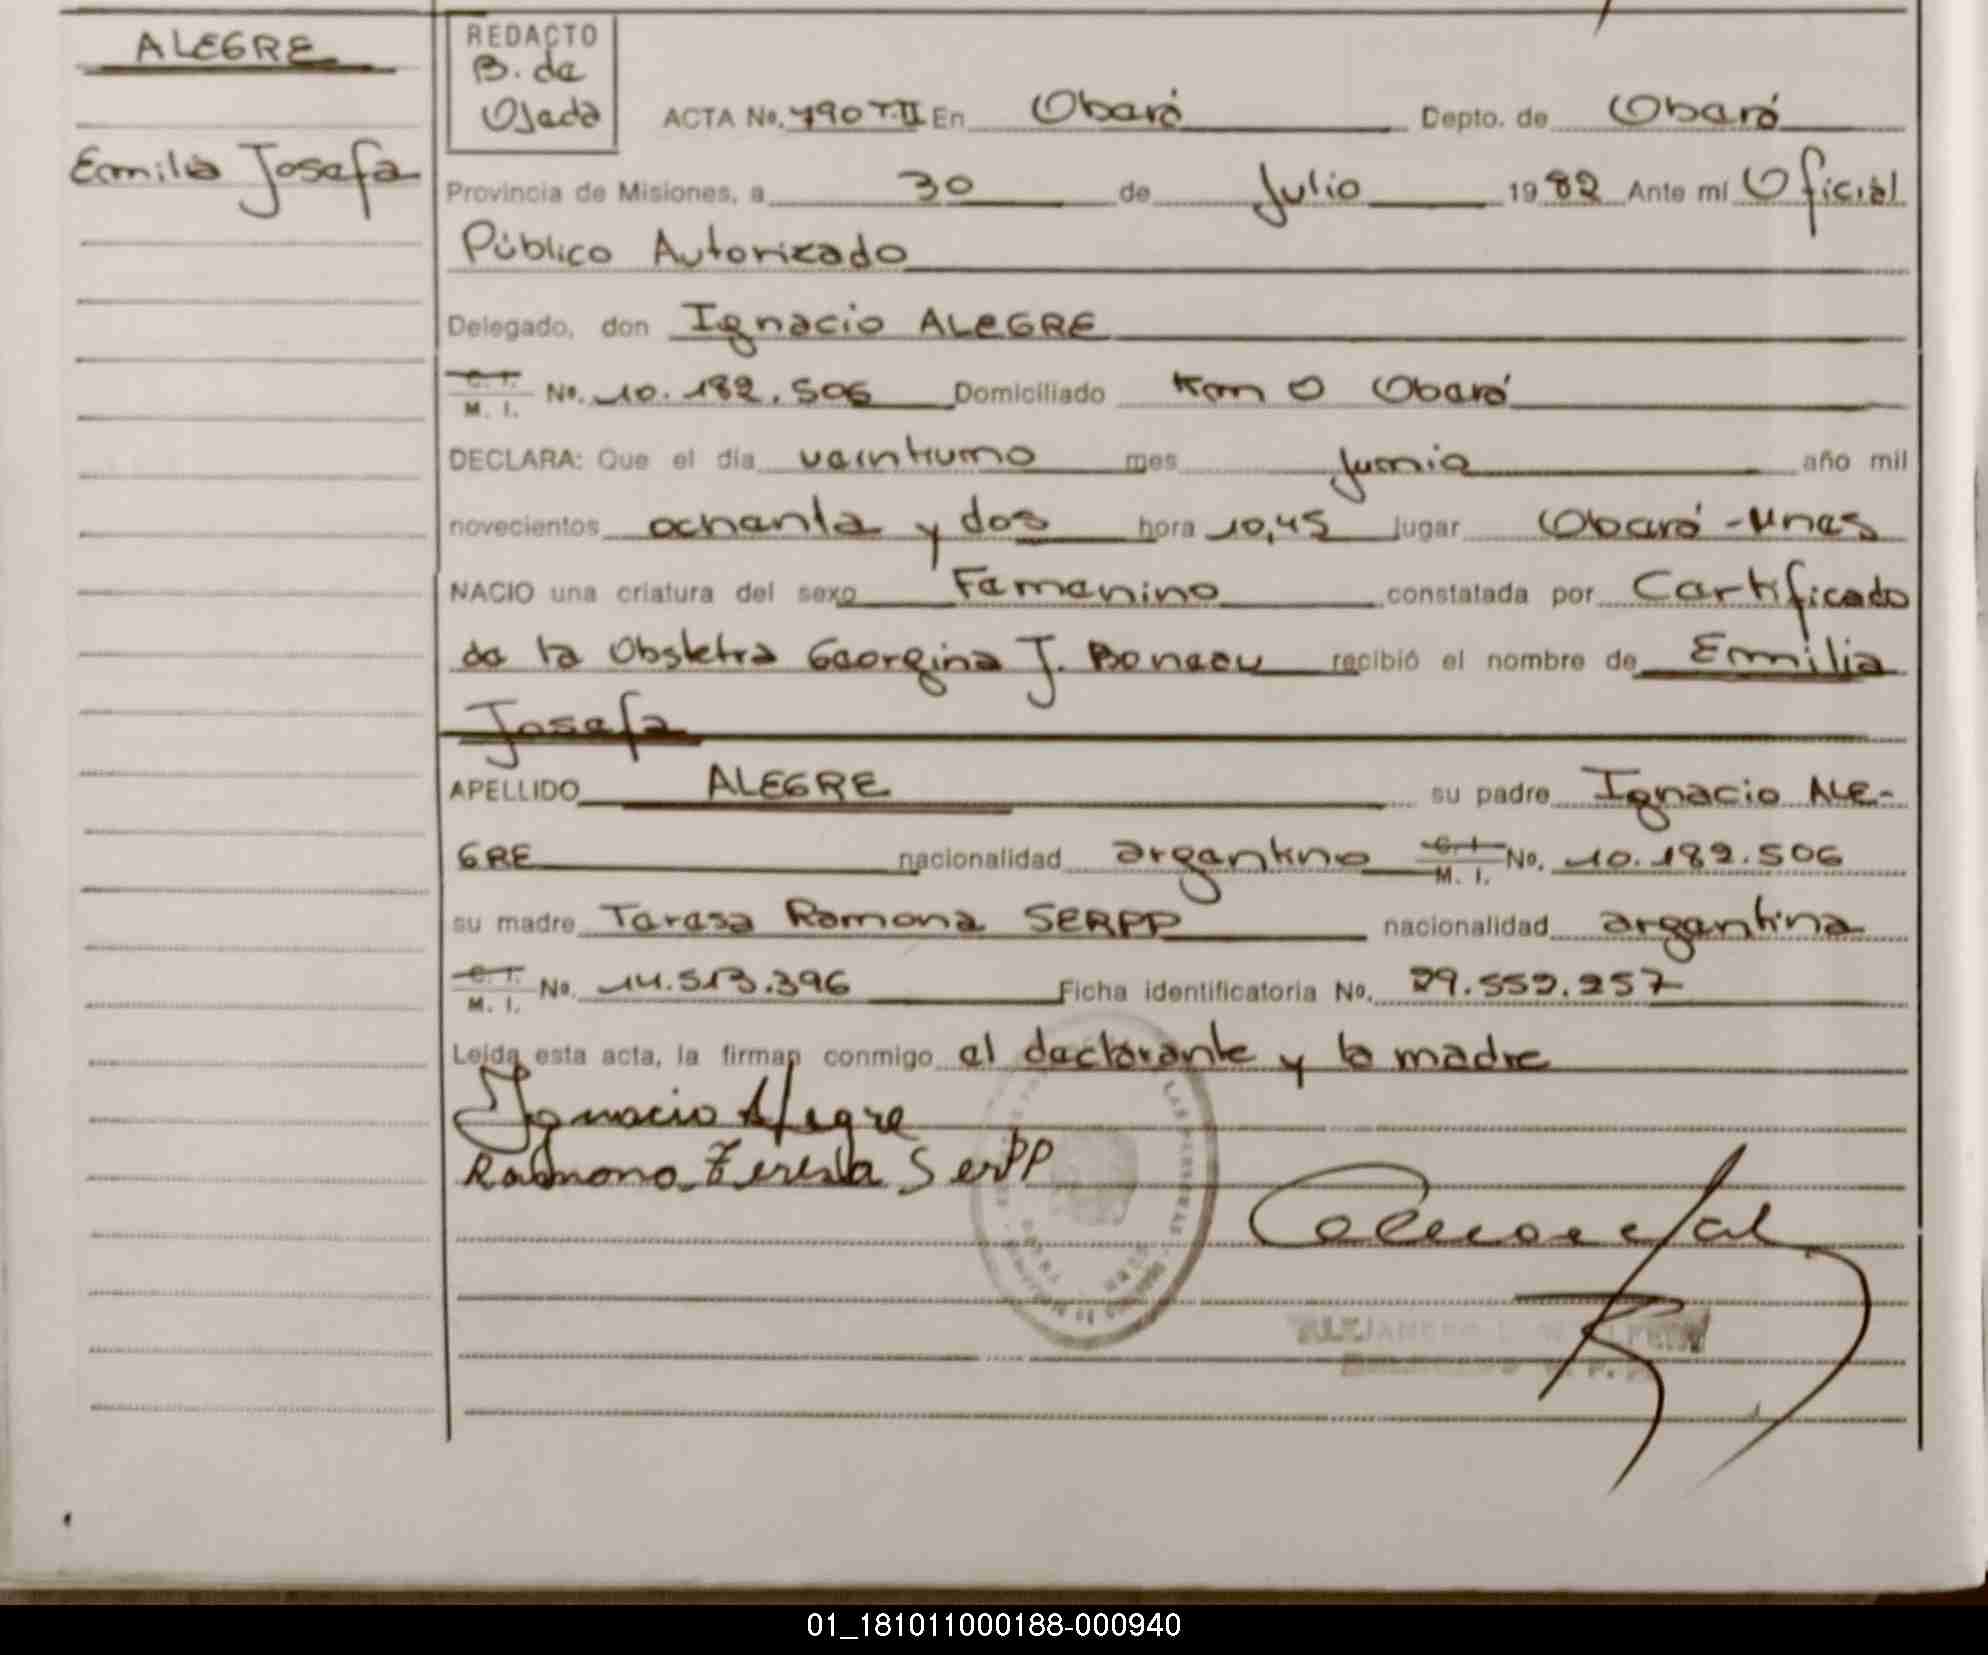 ALEGRE
Emilia Josefa
REDACTO
B. de
Ojeda
ACTA No. 790 T.II En Oberá Depto. de Oberá
Provincia de Misiones, a 30 de Julio 1982 Ante mí Oficial
Público Autorizado
Delegado, don Ignacio ALEGRE
C. I.
M. I. No. 10.182.506 Domiciliado Km 0 Oberá
DECLARA: Que el día veintiuno mes junio año mil
novecientos ochenta y dos hora 10,45 lugar Oberá - Mnes
NACIO una criatura del sexo Femenino constatada por Certificado
de la Obstetra Georgina J. recibió el nombre de Emilia
Josefa
APELLIDO ALEGRE su padre Ignacio ALE-
GRE nacionalidad argentino C. I. M. I. No. 10.182.506
su madre Teresa Ramona SERPP nacionalidad argentina
C. I.
M. I. No. 14.513.396 Ficha identificatoria No. 29.552.257
Leída esta acta, la firman conmigo el declarante y la madre
Ignacio Alegre
Ramona Teresa Serpp
01_181011000188-000940